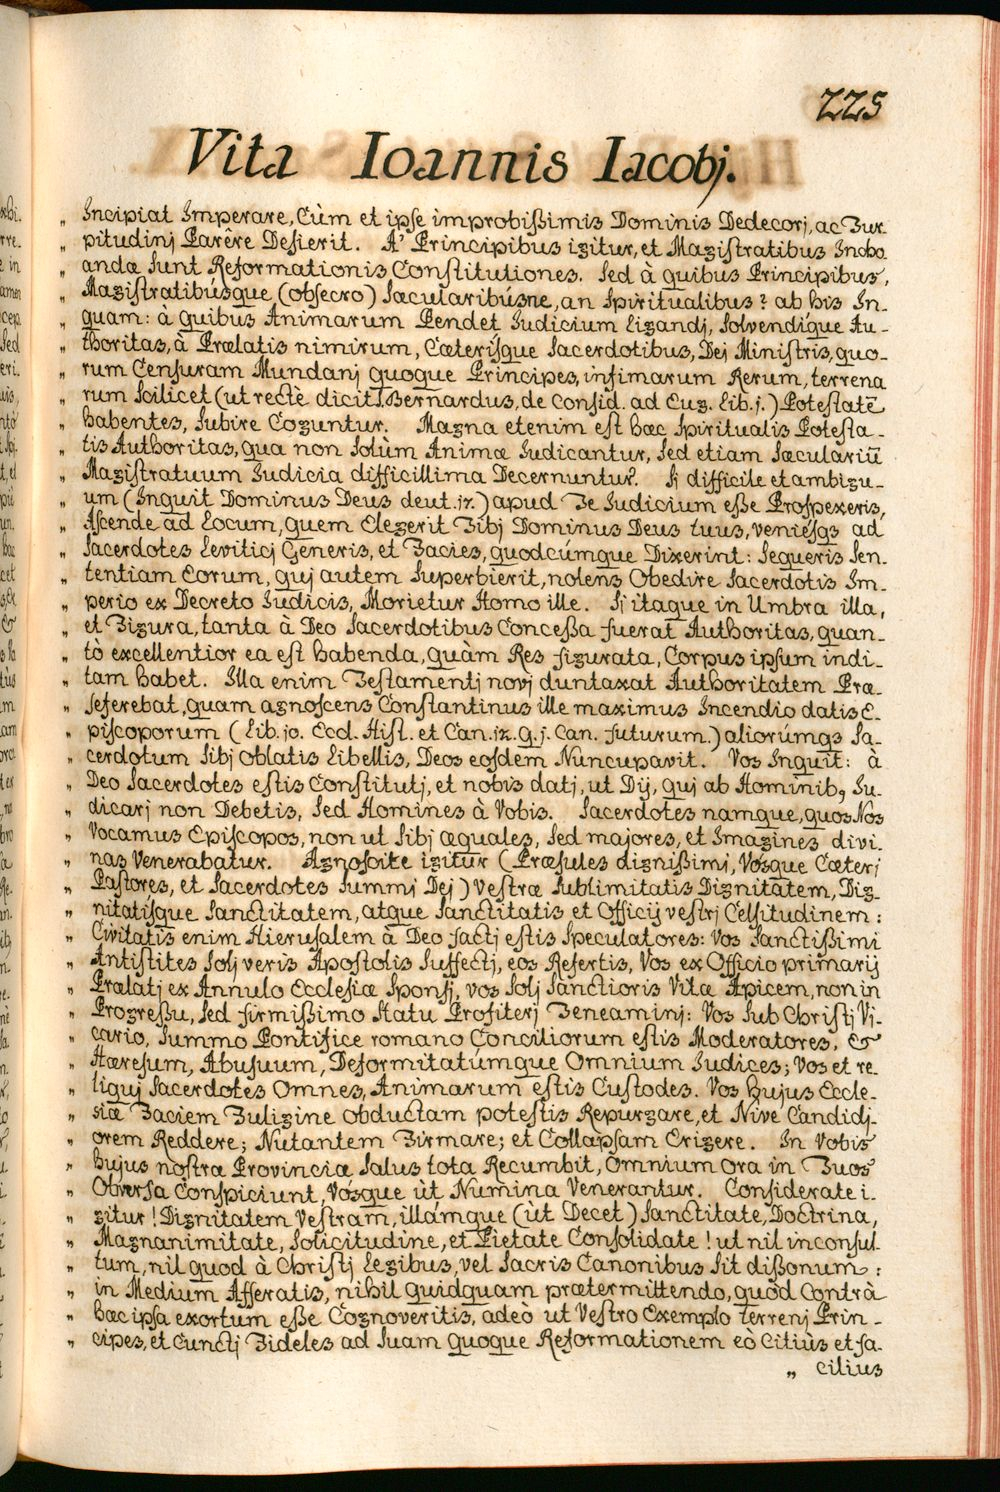 225
Vita Ioannis Iacobj.
„ Incipiat Imperare, Cùm et ipse improbißimis Dominis Dedecorj, ac Tur
„ pitudinj Parêre Desierit. A' Principibus igitur, et Magistratibus Incho
„ andæ sunt Reformationis Constitutiones. Sed à quibus Principibus,
„ Magistratibúsque (obsecro) sæcularibúsne, an Spiritualibus? ab his In-
„ quam: à quibus Animarum Pendet Judicium Ligandj, solvendíque Au-
„ thoritas, à Prælatis nimirum, Cæterísque Sacerdotibus, Dej Ministris, quo-
„ rum Censuram Mundanj quoque Principes, infimarum Rerum, terrena
„ rum scilicet (ut rectè dicit S. Bernardus, de Consid. ad Eug. Lib. j.) Potestatē
„ habentes, subire Coguntur. Magna etenim est hæc Spiritualis Potesta-
„ tis Authoritas, qua non solùm Animæ Judicantur, sed etiam Sæculariū
„ Magistratuum Judicia difficillima Decernuntur. Sj difficile et ambigu-
„ um (Inquit Dominus Deus deut. 17.) apud Te Judicium eße Prospexeris,
„ Ascende ad Locum, quem Elegerit Tibj Dominus Deus tuus, veniésqȝ ad
„ Sacerdotes Leviticj Generis, et Facies, quodcúmque Dixerint: Sequeris Sen-
„ tentiam Eorum, quj autem Superbierit, nolens Obedire Sacerdotis Im-
„ perio ex Decreto Judicis, Morietur Homo ille. Sj itaque in Umbra illa,
„ et Figura, tanta à Deo Sacerdotibus Conceßa fuerat Authoritas, quan-
„ tò excellentior ea est habenda, quàm Res figurata, Corpus ipsum indi-
„ tam habet. Illa enim Testamentj novj duntaxat Authoritatem Præ-
„ seferebat, quam agnoscens Constantinus ille maximus Incendio datis E-
„ piscoporum (Lib. 10. Eccl. Hist. et Can. 12. q. j. Can. futurum.) aliorúmqȝ Sa-
„ cerdotum sibj oblatis Libellis, Deos eosdem Nuncupavit. Vos Inquit: à
„ Deo Sacerdotes estis Constitutj, et nobis datj, ut Dij, quj ab Hominibȝ Ju-
„ dicarj non Debetis, sed Homines à Vobis. Sacerdotes namque, quos Nos
„ Vocamus Episcopos, non ut sibj æquales, sed majores, et Imagines divi-
„ nas Venerabatur. Agnoscite igitur (Præsules dignißimj, Vósque Cæterj
„ Pastores, et Sacerdotes Summj Dej) vestræ Sublimitatis Dignitatem, Dig-
„ nitatísque Sanctitatem, atque Sanctitatis et Officij vestrj Celsitudinem:
„ Civitatis enim Hierusalem à Deo factj estis Speculatores: Vos Sanctißimi
„ Antistites Solj veris Apostolis Suffectj, eos Refertis, Vos ex Officio primarij
„ Prælatj ex Annulo Ecclesiæ Sponsj, vos Solj Sanctioris Vitæ Apicem, non in
„ Progreßu, sed firmißimo Statu Profiterj Teneaminj: Vos Sub Christj Vi-
„ cario, Summo Pontifice romano Conciliorum estis Moderatores, &
„ Hæresum, Abusuum, Deformitatúmque Omnium Judices; Vos et re
„ liquj Sacerdotes Omnes, Animarum estis Custodes. Vos hujus Eccle-
„ siæ Faciem Fuligine obductam potestis Repurgare, et Nive Candidj-
„ orem Reddere; Nutantem Firmare; et Collapsam Erigere. In Vobis
„ hujus nostræ Provinciæ Salus tota Recumbit, Omnium ora in Tuos
„ Obversa Conspiciunt, Vósque ùt Numina Venerantur. Considerate i-
„ gitur! Dignitatem Vestram, illámque (ùt Decet) Sanctitate, Doctrina,
„ Magnanimitate, Solicitudine, et Pietate Consolidate! ut nil inconsul
„ tum, nil quod à Christj Legibus, vel Sacris Canonibus Sit dißonum:
„ in Medium Afferatis, nihil quidquam prætermittendo, quod Contrà
„ hæc ipsa exortum eße Cognoveritis, adeò ut Vestro Exemplo terrenj Prin-
„ cipes, et Cunctj Fideles ad Suam quoque Reformationem eò Citiùs et fa-
„ cilius